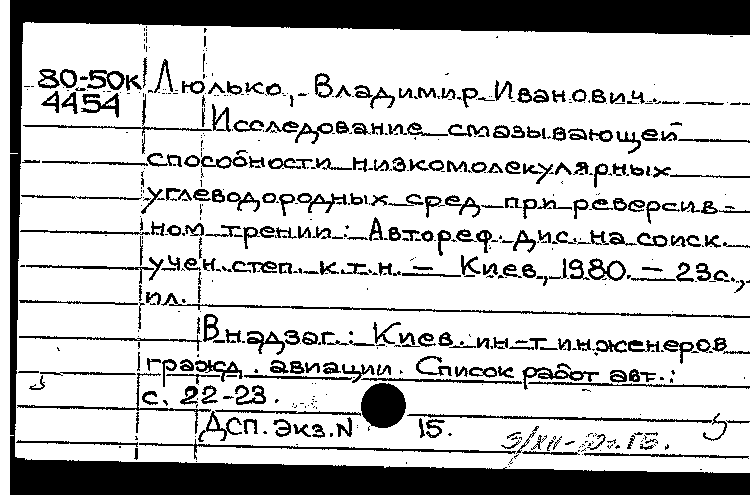 80-50к Люлько, Владимир Иванович.
4454
Исследование смазывающей
способности низкомолекулярных
углеводородных сред при реверсив-
ном трении: Автореф. дис. на соиск.
учен. степ. к.т.н. — Киев, 1980. — 23с.,
ил.
В надзаг.: Киев. ин-т инженеров
гражд. авиации. Список работ авт.:
с. 22-23.
ДСП. Экз. N 15.
3/XII-80г. ГВ.